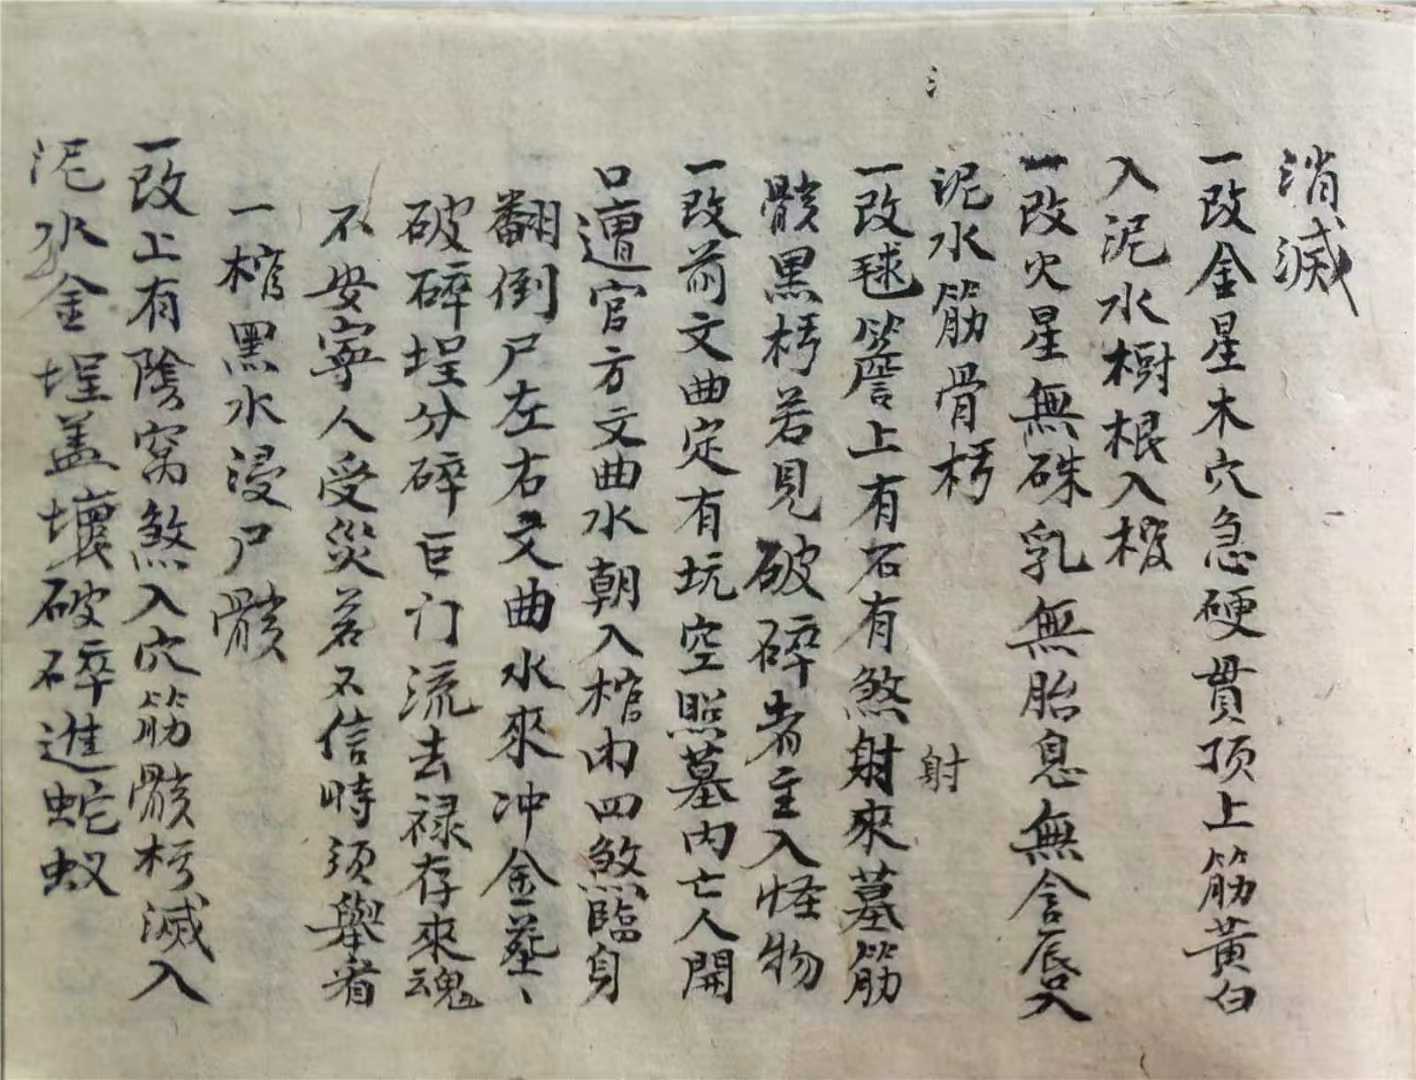 消滅
一改金星木穴急硬貫顶上筋黃白
入泥水樹根入棺
一改火星無硃乳無胎息無含唇入
泥水筋骨朽
一改毬簷上有石有煞射來墓筋
射
骸黑朽若見破碎者主入怪物
一改前文曲定有坑空照墓内亡人開
口遭官方文曲水朝入棺内四煞臨身
翻倒尸左右文曲水來冲金墓、
破碎埕分碎巨门流去禄存來魂
不安寧人受災若不信時须舉看
一棺黑水浸尸骸
一改上有陰窩煞入穴筋骸朽滅入
泥水金埕盖壞破碎進蛇蚁